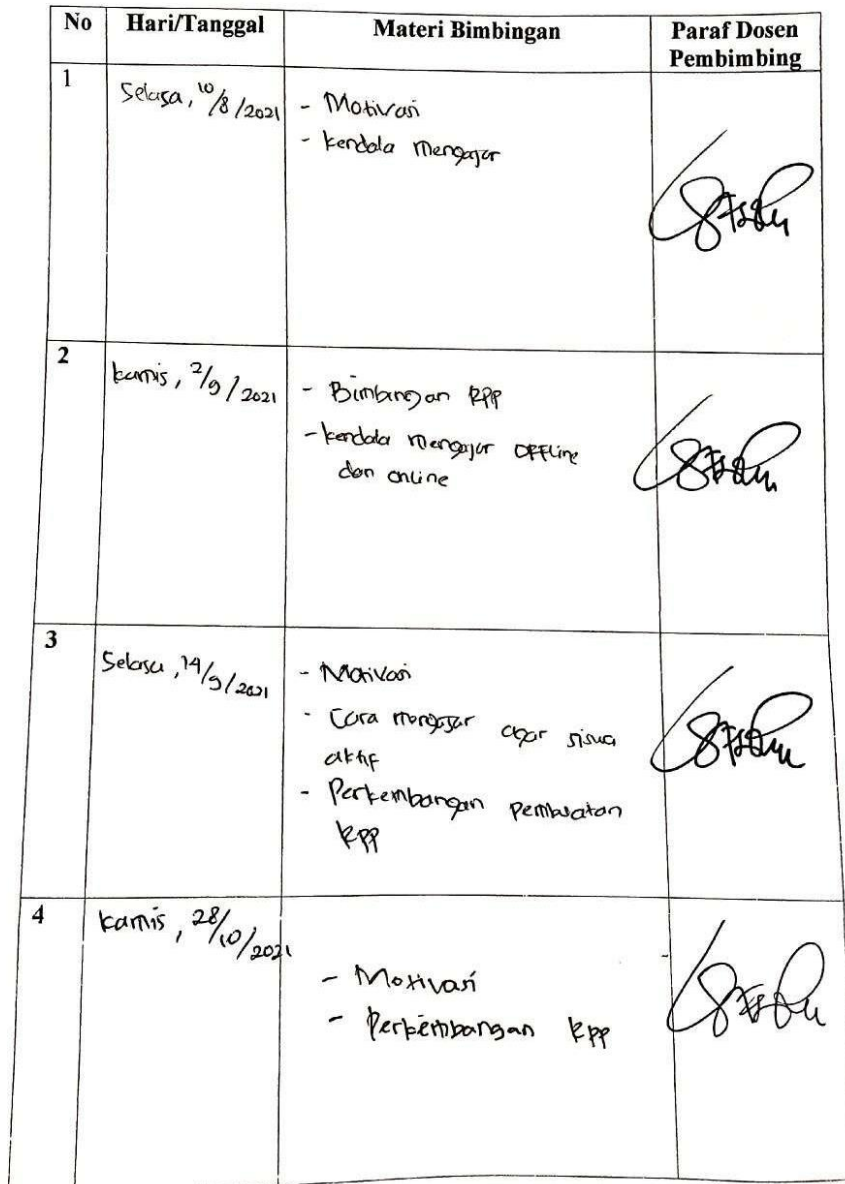 No Hari/Tanggal Materi Bimbingan Paraf Dosen
Pembimbing
1
Selasa, 10/8/2021
- Motivasi
- kendala mengajar
2
kamis, 2/9/2021
- Bimbingan RPP
- kendala mengajar OFFline
dan online
3
Selasa, 14/9/2021
- Motivasi
- Cara mengajar agar siswa
aktif
- Perkembangan pembuatan
RPP
4
kamis, 28/10/2021
- Motivasi
- Perkembangan RPP